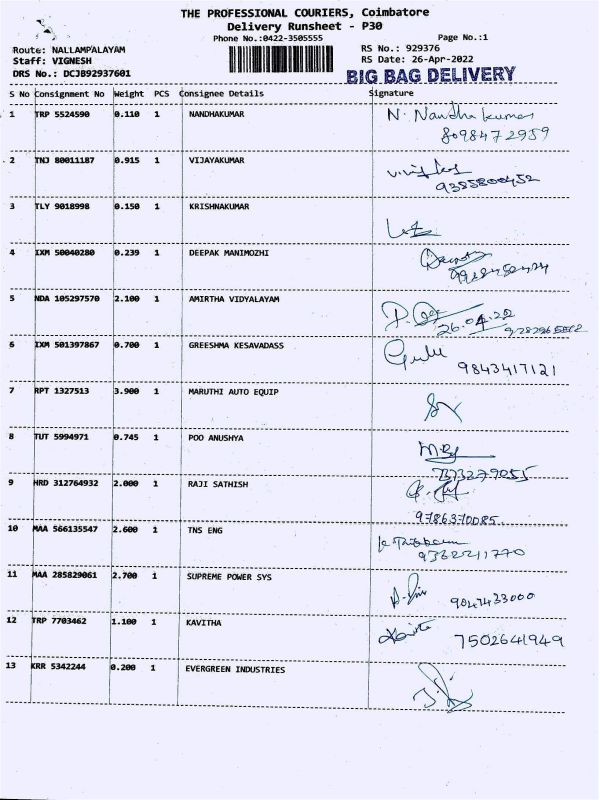 THE PROFESSIONAL COURIERS, Coimbatore
Delivery Runsheet - P30
Phone No.:0422-3505555
Page No.:1
Route: NALLAMPALAYAM
RS No.: 929376
Staff: VIGNESH
RS Date: 26-Apr-2022
DRS No.: DCJB92937601
BIG BAG DELIVERY
S No Consignment No Weight PCS Consignee Details Signature
1 TRP 5524590 0.110 1 NANDHAKUMAR N. Nandha kumar
8098472959
2 TNJ 80011187 0.915 1 VIJAYAKUMAR
9385800452
3 TLY 9018998 0.150 1 KRISHNAKUMAR
4 IXM 50040280 0.239 1 DEEPAK MANIMOZHI
5 NDA 105297570 2.100 1 AMIRTHA VIDYALAYAM
26.04.22
6 IXM 501397867 0.700 1 GREESHMA KESAVADASS
9843417121
7 RPT 1327513 3.900 1 MARUTHI AUTO EQUIP
8 TUT 5994971 0.745 1 POO ANUSHYA
7373279055
9 HRD 312764932 2.000 1 RAJI SATHISH
9786370085
10 MAA 566135547 2.600 1 TNS ENG
9362211770
11 MAA 285829061 2.700 1 SUPREME POWER SYS
9047433000
12 TRP 7703462 1.100 1 KAVITHA Kavitha
7502641949
13 KRR 5342244 0.200 1 EVERGREEN INDUSTRIES